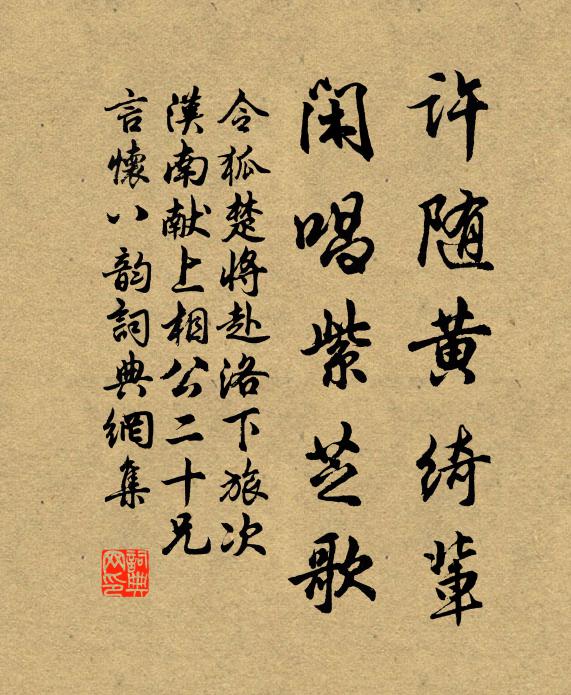 许随黄绮辈
闲唱紫芝歌
令狐楚将赴洛下旅次
漢南献上相公二十兄
言懷八韵詞典網集
詞典网印